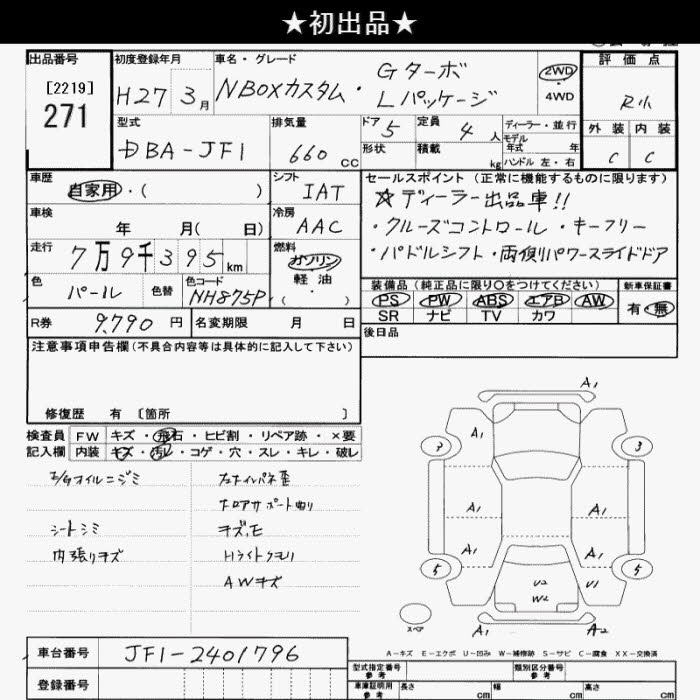 ★初出品★
出品番号 初度登録年月 車名・グレード 評価点
[2219]
271
H27 3月 NBOXカスタム・Gターボ Lパッケージ 2WD・4WD R小
型式 排気量 ドア 5 定員 4人 ディーラー・並行 外装 内装
DBA-JF1 660cc 形状 積載 kg モデル年式 年 ハンドル 左・右 C C
車歴 自家用・( ) シフト IAT セールスポイント (正常に機能するものに限ります)
☆ディーラー出品車!!
車検 年 月( 日) 冷房 AAC ・クルーズコントロール・キーフリー
走行 7万9千395km 燃料 ガソリン 軽油 ・( ) ・パドルシフト・両側パワースライドドア
色 パール 色替 色コード NH875P 装備品 (純正品に限り○をつけてください) 新車保証書
PS PW ABS エアB AW 有・無
SR ナビ TV カワ
R券 9,790円 名変期限 月 日 後日品
注意事項申告欄(不具合内容等は具体的に記入して下さい)
修復歴 有 [箇所 ]
検査員 FW キズ・飛石・ヒビ割・リペア跡・×要
記入欄 内装 キズ・汚レ・コゲ・穴・スレ・キレ・破レ
E/Gオイルニジミ
シートシミ
内張りキズ
コアサポート曲り
キズ,E
Hライトクモリ
AWキズ
A1
A1
7 3
A1 A2
A1 A1
5 5
U2 U1
W2
スペア
A1 A2
A-キズ E-エクボ U-凹み W-補修跡 S-サビ C-腐食 XX-交換済
車台番号 JF1-2401796
登録番号
型式指定番号 参考 類別区分番号 参考
車庫証明用 参考 長さ cm 幅 cm 高さ cm